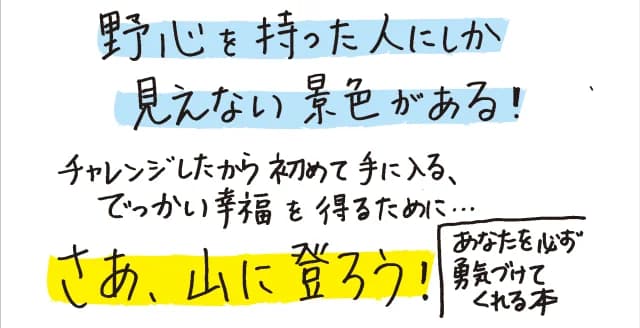 野心を持った人にしか
見えない景色がある!
チャレンジしたから初めて手に入る、
でっかい幸福を得るために…
さあ、山に登ろう!
あなたを必ず
勇気づけて
くれる本